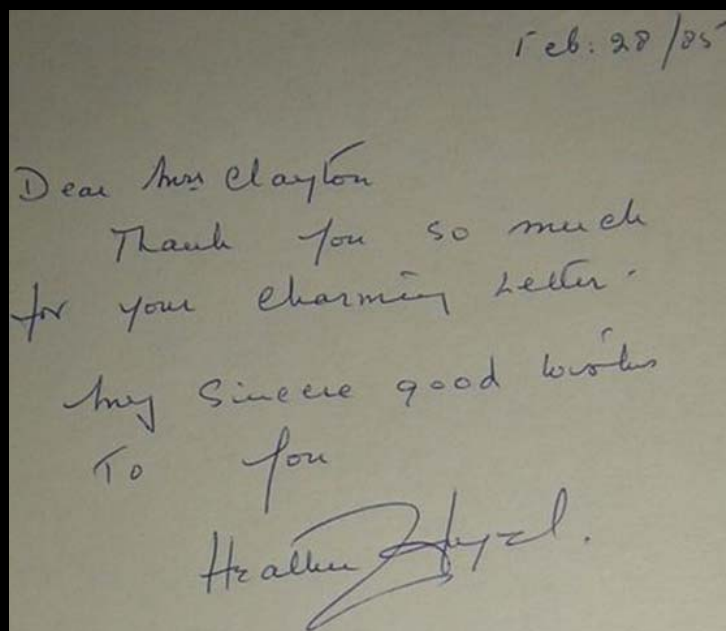 Feb: 28/85
Dear Mrs Clayton
Thank you so much
for your charming Letter.
My Sincere good wishes
To you
Heather